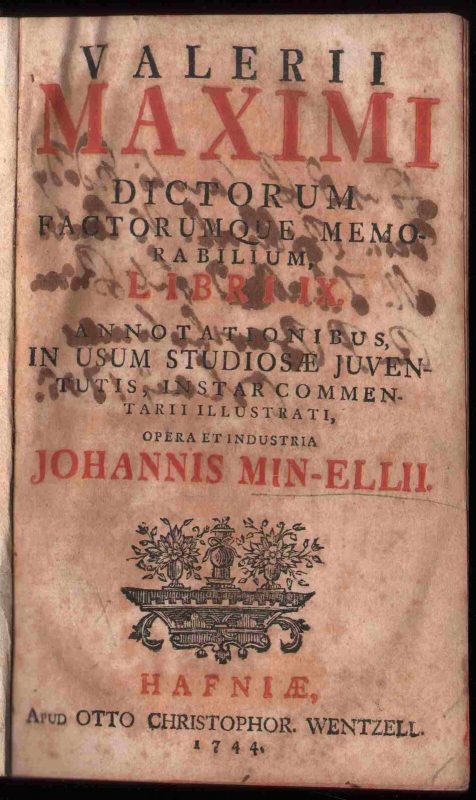 VALERII
MAXIMI
DICTORUM
FACTORUMQUE MEMO-
RABILIUM,
LIBRI IX.
ANNOTATIONIBUS,
IN USUM STUDIOSÆ JUVEN-
TUTIS, INSTAR COMMEN-
TARII ILLUSTRATI,
OPERA ET INDUSTRIA
JOHANNIS MIN-ELLII.
HAFNIÆ,
APUD OTTO CHRISTOPHOR. WENTZELL.
1744.